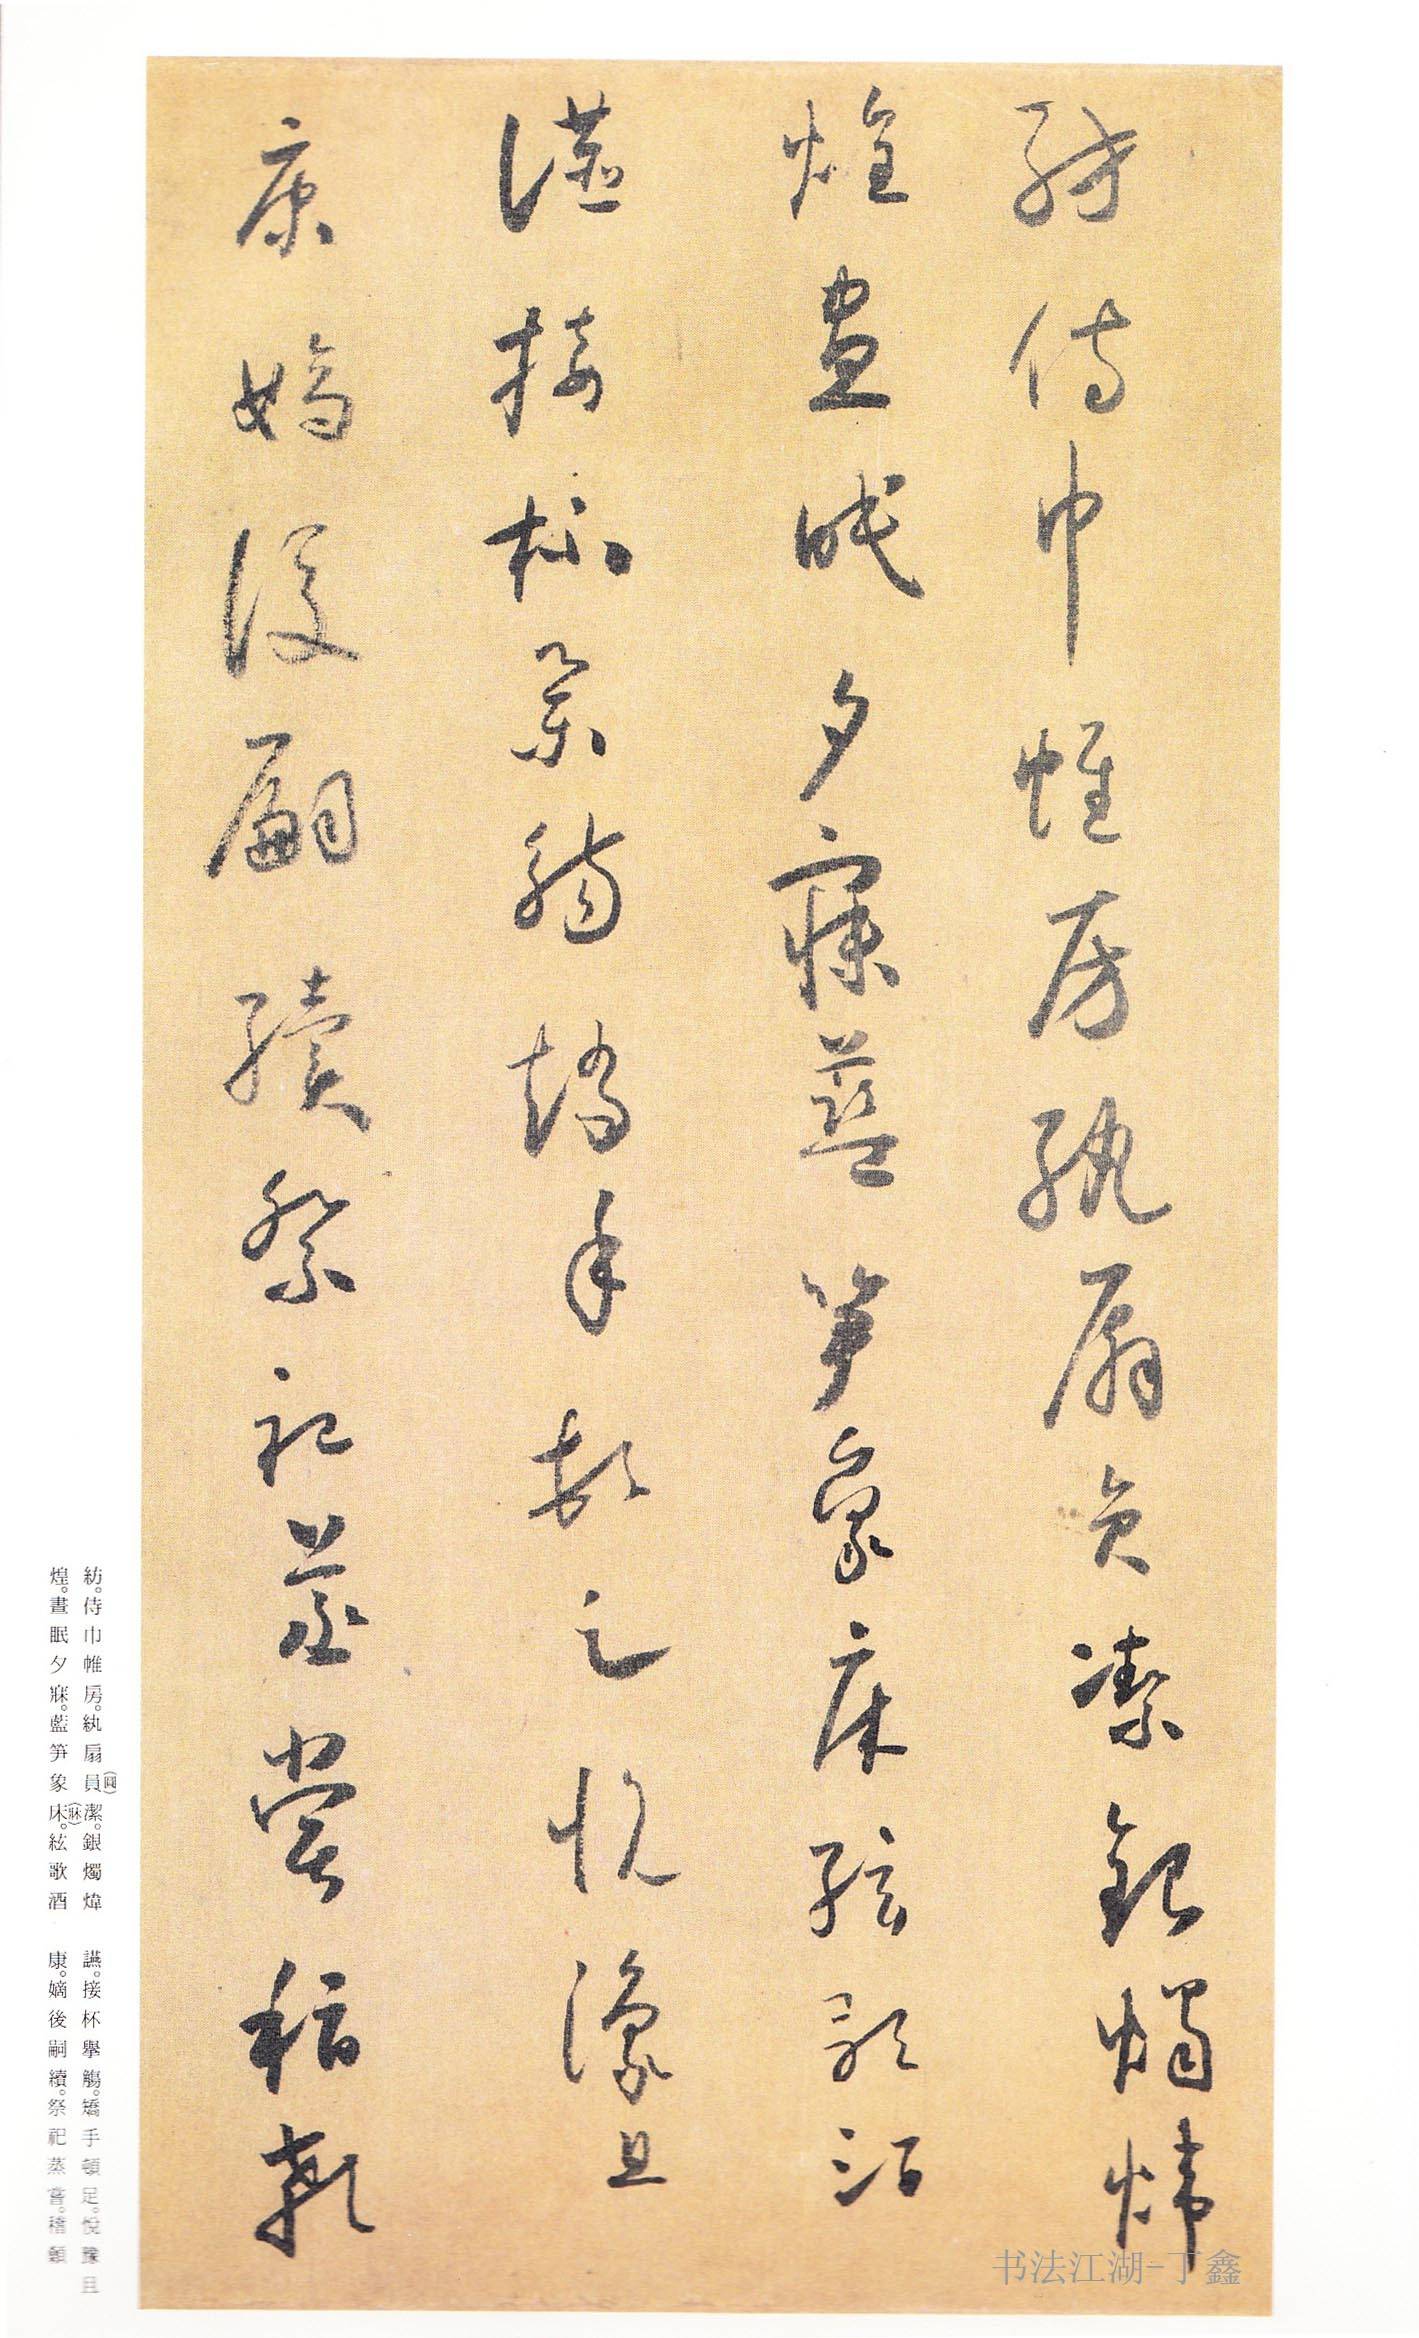 紡侍巾帷房紈扇員潔銀燭煒
煌晝眠夕寐藍笋象床絃歌酒
讌接杯舉觴矯手頓足悅豫且
康嫡後嗣續祭祀蒸嘗稽顙
紡。侍巾帷房。紈扇員(圓)潔。銀燭煒
煌。晝眠夕寐。藍笋象床(牀)。絃歌酒
讌。接杯舉觴。矯手頓足。悅豫且
康。嫡後嗣續。祭祀蒸嘗。稽顙
书法江湖-丁鑫